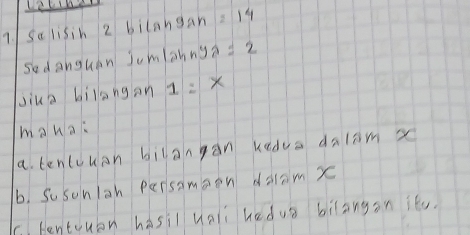 Latihan
1. Selisih 2 bilangan = 14
sedangkan jumlahnya = 2
Jika bilangan 1 = x
maka:
a. tentukan bilangan kedua dalam x
b. Susunlah persamaan dalam x
c. tentukan hasil kali kedua bilangan itu.